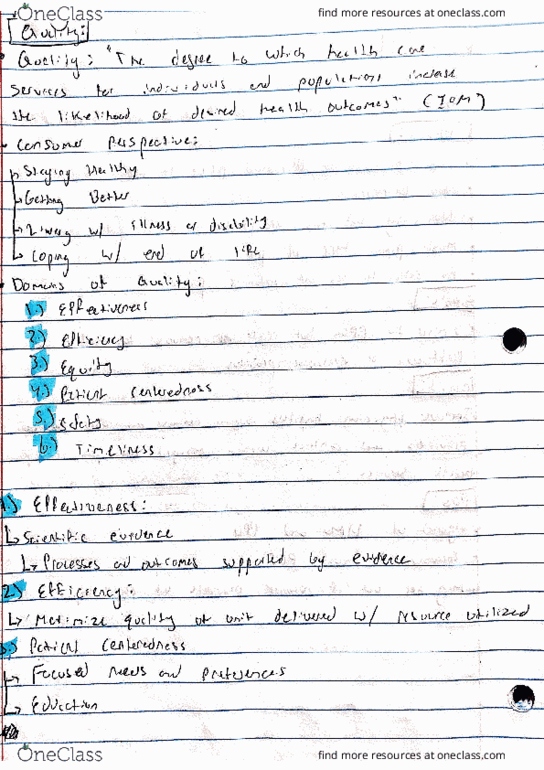 OneClass
find more resources at oneclass.com
Quality:
Quality: "The degree to which health care
services for individuals and populations increase
the likelihood of desired health outcomes" (IOM)
Consumer Perspective:
Staying Healthy
Getting Better
Living w/ Illness or disability
Coping w/ end of life
Domains of Quality:
1.) Effectiveness
2.) Efficiency
3.) Equity
4.) Patient centeredness
5.) Safety
6.) Timeliness
1.) Effectiveness:
Scientific evidence
Processes and outcomes supported by evidence
2.) Efficiency:
Maximize quality of unit delivered w/ resource utilized
3.) Patient Centeredness
Focused needs and preferences
Education
OneClass
find more resources at oneclass.com